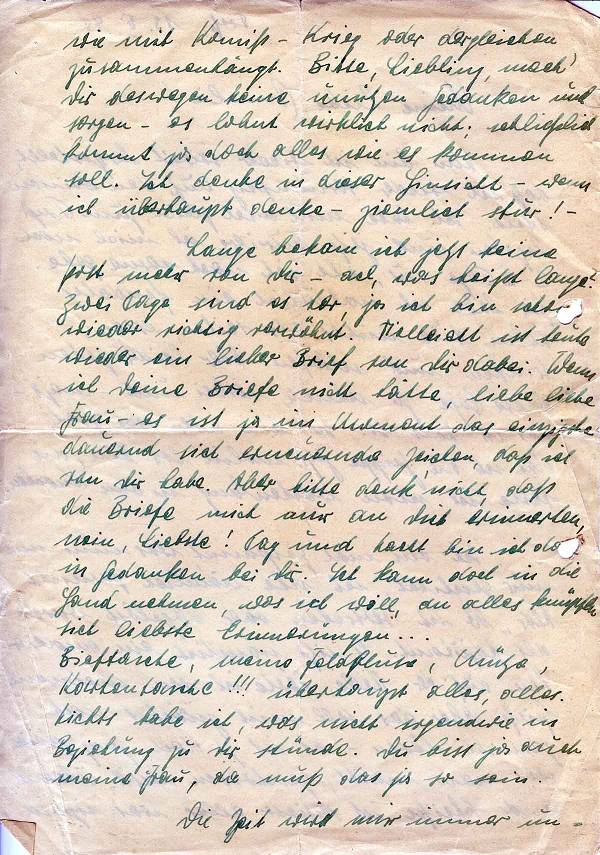 wie mit Komiß - Krieg oder dergleichen
zusammenhängt. Bitte, Liebling, mach'
Dir deswegen keine unnützen Gedanken und
Sorgen - es lohnt wirklich nicht; schließlich
kommt ja doch alles wie es kommen
soll. Ich denke in dieser Hinsicht - wenn
ich überhaupt denke - ziemlich stur! -
Lange bekam ich jetzt keine
Post mehr von Dir - ach, was heißt lange?
Zwei Tage sind es her, ja ich bin schon
wieder richtig verwöhnt. Vielleicht ist heute
wieder ein lieber Brief von Dir dabei. Wenn
ich Deine Briefe nicht hätte, liebe liebe
Frau - es ist ja im Moment das einzigste
dauernd sich erneuernde Zeichen, daß ich
von Dir habe. Aber bitte denk' nicht, daß
die Briefe mich nur an Dich erinnerten,
nein, Liebste! Tag und Nacht bin ich doch
in Gedanken bei Dir. Ich kann doch in die
Hand nehmen, was ich will, an alles knüpfen
sich liebste Erinnerungen...
Brieftasche, meine Feldbluse, Mütze,
Kartentasche!!! überhaupt alles, alles.
Nichts habe ich, was nicht irgendwie in
Beziehung zu Dir stünde. Du bist ja auch
meine Frau, da muß das ja so sein.
Die Zeit wird mir immer un-